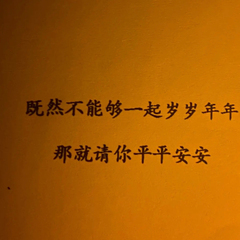 既然不能够一起岁岁年年
那就请你平平安安